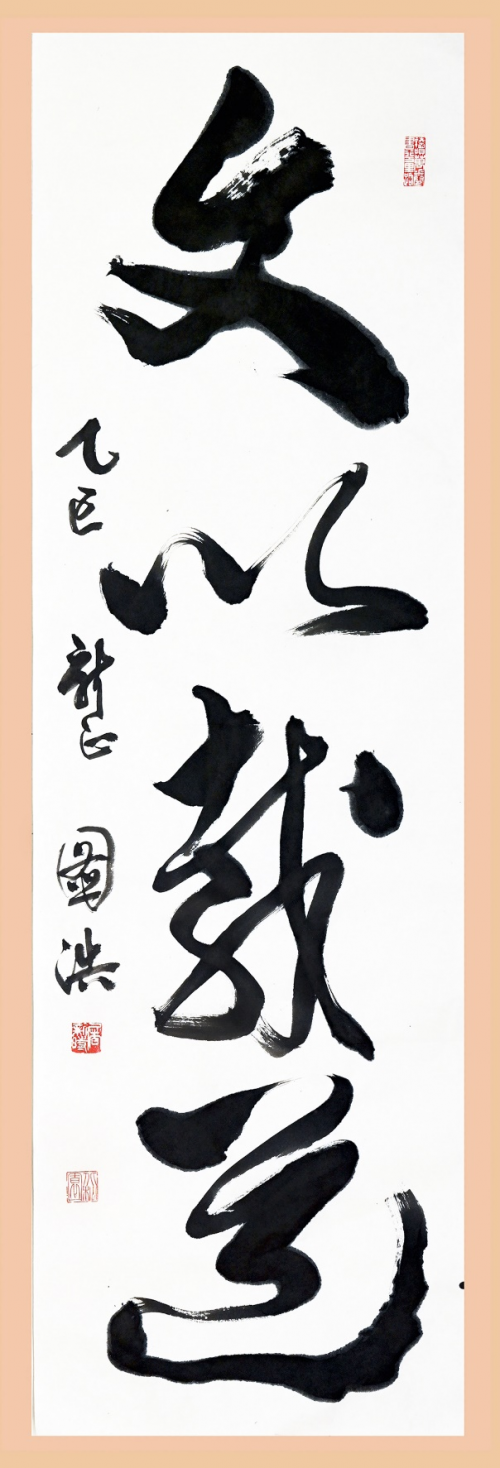 文以載道
乙巳 新正 國浩